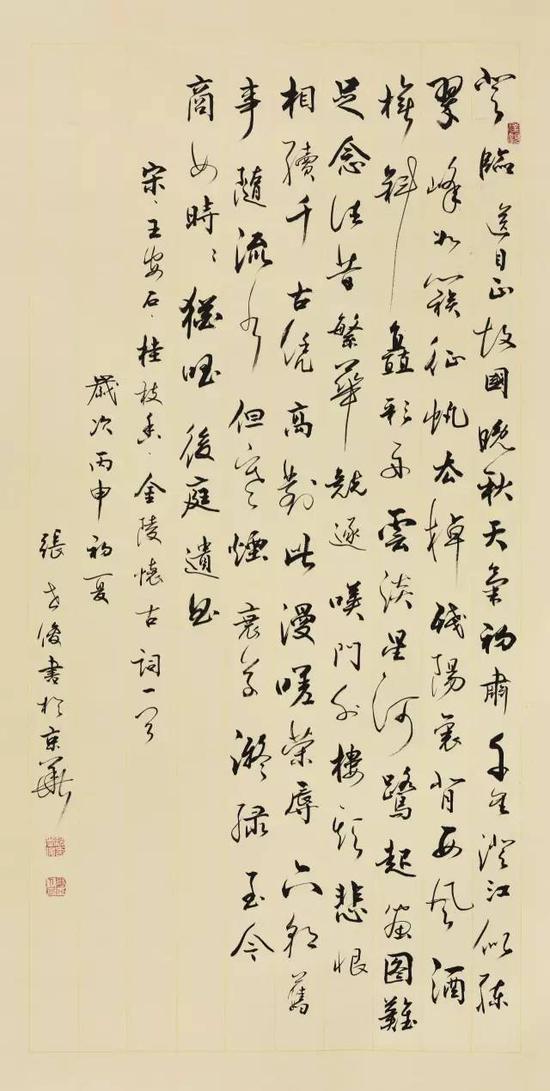 登臨送目正故國晚秋天氣初肅千里澄江似練
翠峰如簇征帆去棹殘陽裏背西風酒
旗斜矗彩舟雲淡星河鷺起畫圖難
足念往昔繁華競逐嘆門外樓頭悲恨
相續千古憑高對此漫嗟榮辱六朝舊
事隨流水但寒煙衰草凝綠至今
商女時〻猶唱後庭遺曲
宋·王安石·桂枝香·金陵懷古詞一首
歲次丙申初夏
張俊書於京華